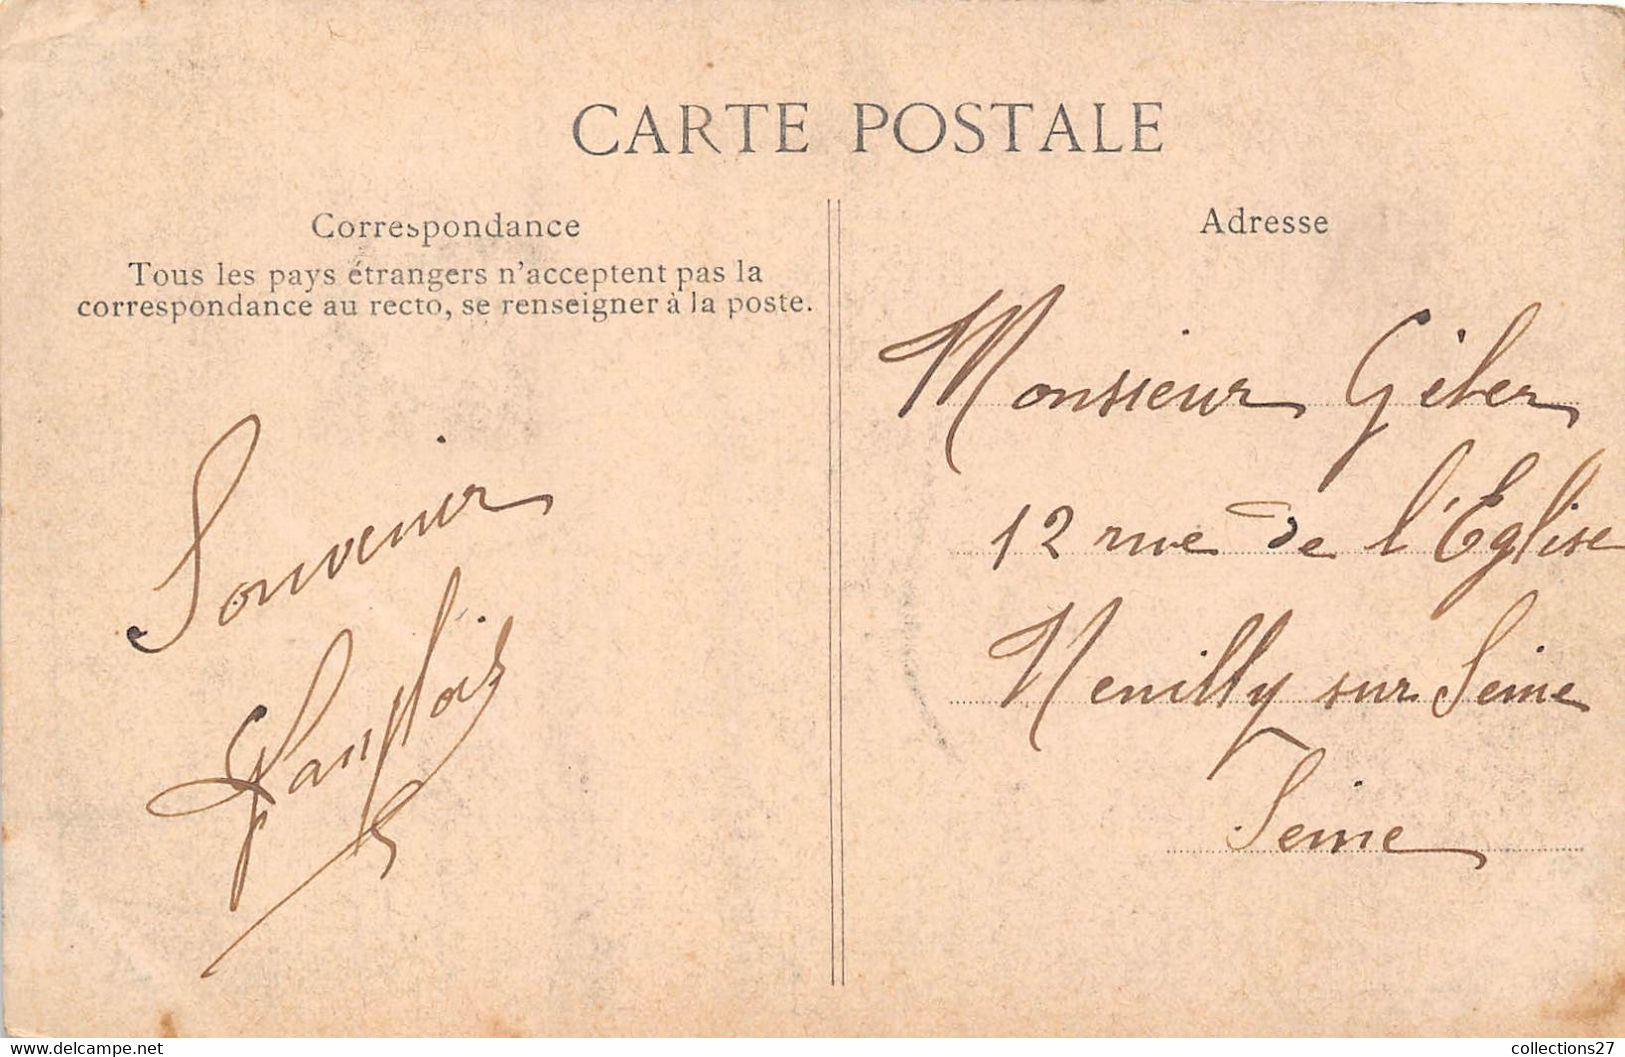 CARTE POSTALE
Correspondance
Tous les pays étrangers n'acceptent pas la
correspondance au recto, se renseigner à la poste.
Souvenir
Adresse
Monsieur Giber
12 rue de l'Eglise
Neuilly sur Seine
Seine
collections27